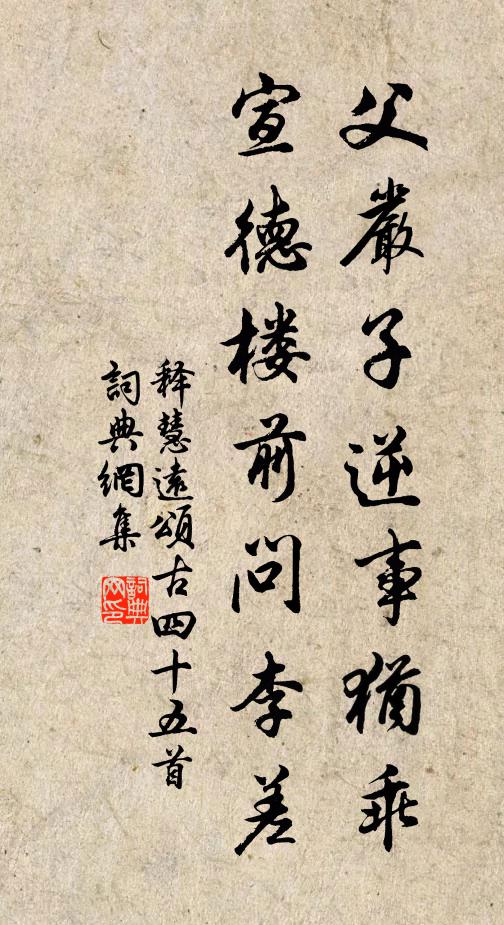 父嚴子逆事猶乖
宣德楼前問李差
释慧遠頌古四十五首
詞典網集
詞典